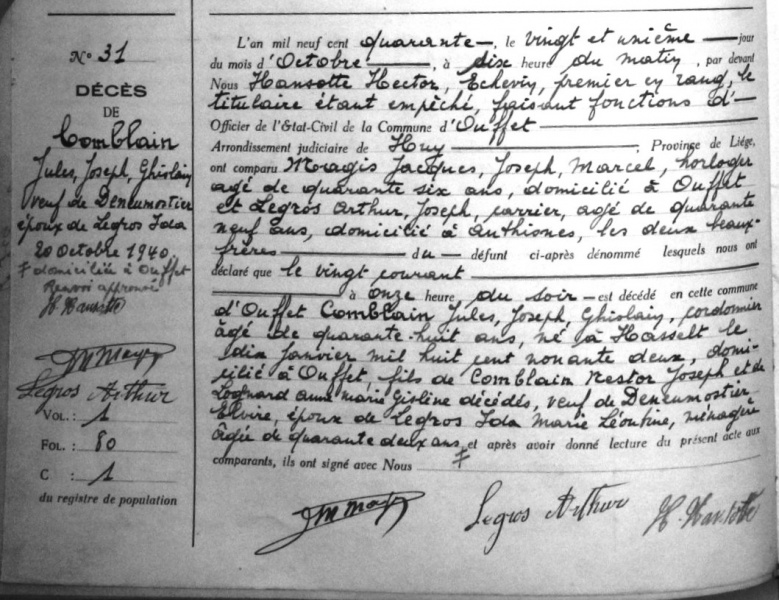 N° 31
DÉCÈS
DE
Comblain
Jules, Joseph, Ghislain
veuf de Deneumostier
époux de Legros Ida
20 octobre 1940
≠ domiciliée à Ouffet
Renvoi approuvé
H. Hansotte
Legros Arthur
VOL. : 1
FOL. : 80
C : 1
du registre de population
L'an mil neuf cent quarante, le vingt et unième jour
du mois d'Octobre, à dix heure du matin, par devant
Nous Hansotte Hector, Echevin, premier en rang, le
titulaire étant empêché, faisant fonctions d'
Officier de l'État-Civil de la Commune d'Ouffet
Arrondissement judiciaire de Huy, Province de Liége,
ont comparu Magis Jacques, Joseph, Marcel, horloger
agé de quarante six ans, domicilié à Ouffet
et Legros Arthur, Joseph, carrier, agé de quarante
neuf ans, domicilié à Anthisnes, les deux beaux-
frères du défunt ci-après dénommé lesquels nous ont
déclaré que le vingt courant
à onze heure du soir est décédé en cette commune
d'Ouffet Comblain Jules, Joseph, Ghislain, cordonnier
âgé de quarante huit ans, né à Hasselt le
dix Janvier mil huit cent nonante deux, domi-
cilié à Ouffet, fils de Comblain Nestor Joseph et de
Lognard Anne Marie Gisline décédés, veuf de Deneumostier
Elvire, époux de Legros Ida Marie Léontine, ménagère
âgée de quarante deux ans ≠ et après avoir donné lecture du présent acte aux
comparants, ils ont signé avec Nous
Legros Arthur
H. Hansotte